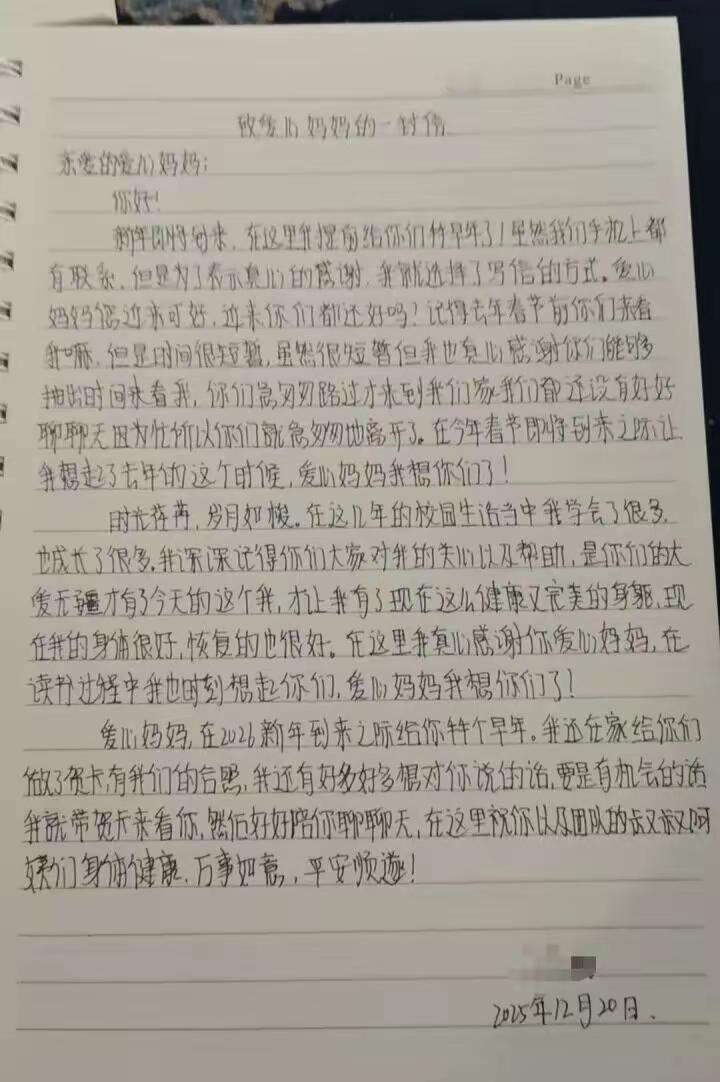 Page
致爱心妈妈的一封信
亲爱的爱心妈妈：
你好！
新年即将到来，在这里我提前给你们拜早年了！虽然我们手机上都
有联系，但是为了表示真心的感谢，我就选择了写信的方式。爱心
妈妈您过来可好，近来你们都还好吗？记得去年春节前你们来看
我嘛，但是时间很短暂，虽然很短暂但我也真心感谢你们能够
抽出时间来看我，你们急匆匆路过才来到我们家我们都还没有好好
聊聊天因为忙所以你们就急匆匆地离开了。在今年春节即将到来之际让
我想起了去年的这个时候，爱心妈妈我想你们了！
时光荏苒，岁月如梭。在这几年的校园生活当中我学会了很多，
也成长了很多，我深深记得你们大家对我的关心以及帮助，是你们的大
爱无疆才有了今天的这个我，才让我有了现在这么健康又完美的身躯，现
在我的身体很好，恢复的也很好。在这里我真心感谢你爱心妈妈，在
读书过程中我也时刻想起你们，爱心妈妈我想你们了！
爱心妈妈，在2026新年到来之际给你拜个早年。我还在家给你们
做了贺卡，有我们的合照，我还有好多好多想对你说的话，要是有机会的话
我就带贺卡来看你，然后好好陪你聊聊天，在这里祝你以及团队的叔叔阿
姨们身体健康，万事如意，平安顺遂！
2025年12月20日.